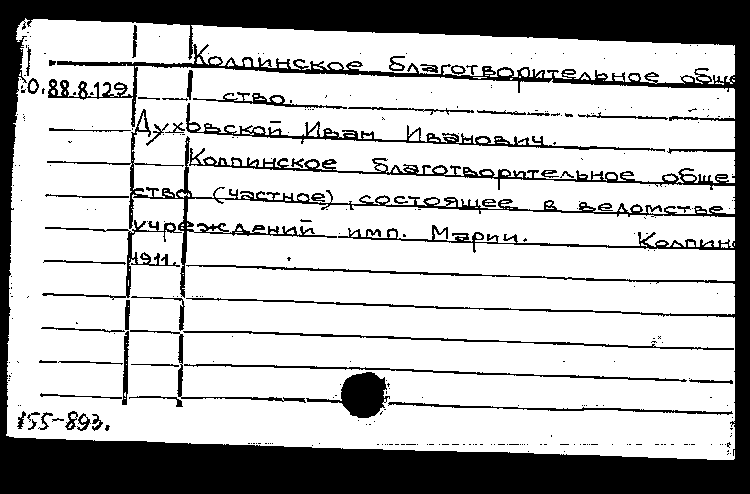 Колпинское благотворительное обще
0.88.8.129. ство.
Духовской Иван Иванович.
Колпинское благотворительное обще-
ство (частное), состоящее в ведомстве
учреждений имп. Марии. Колпино
1911.
155-893.